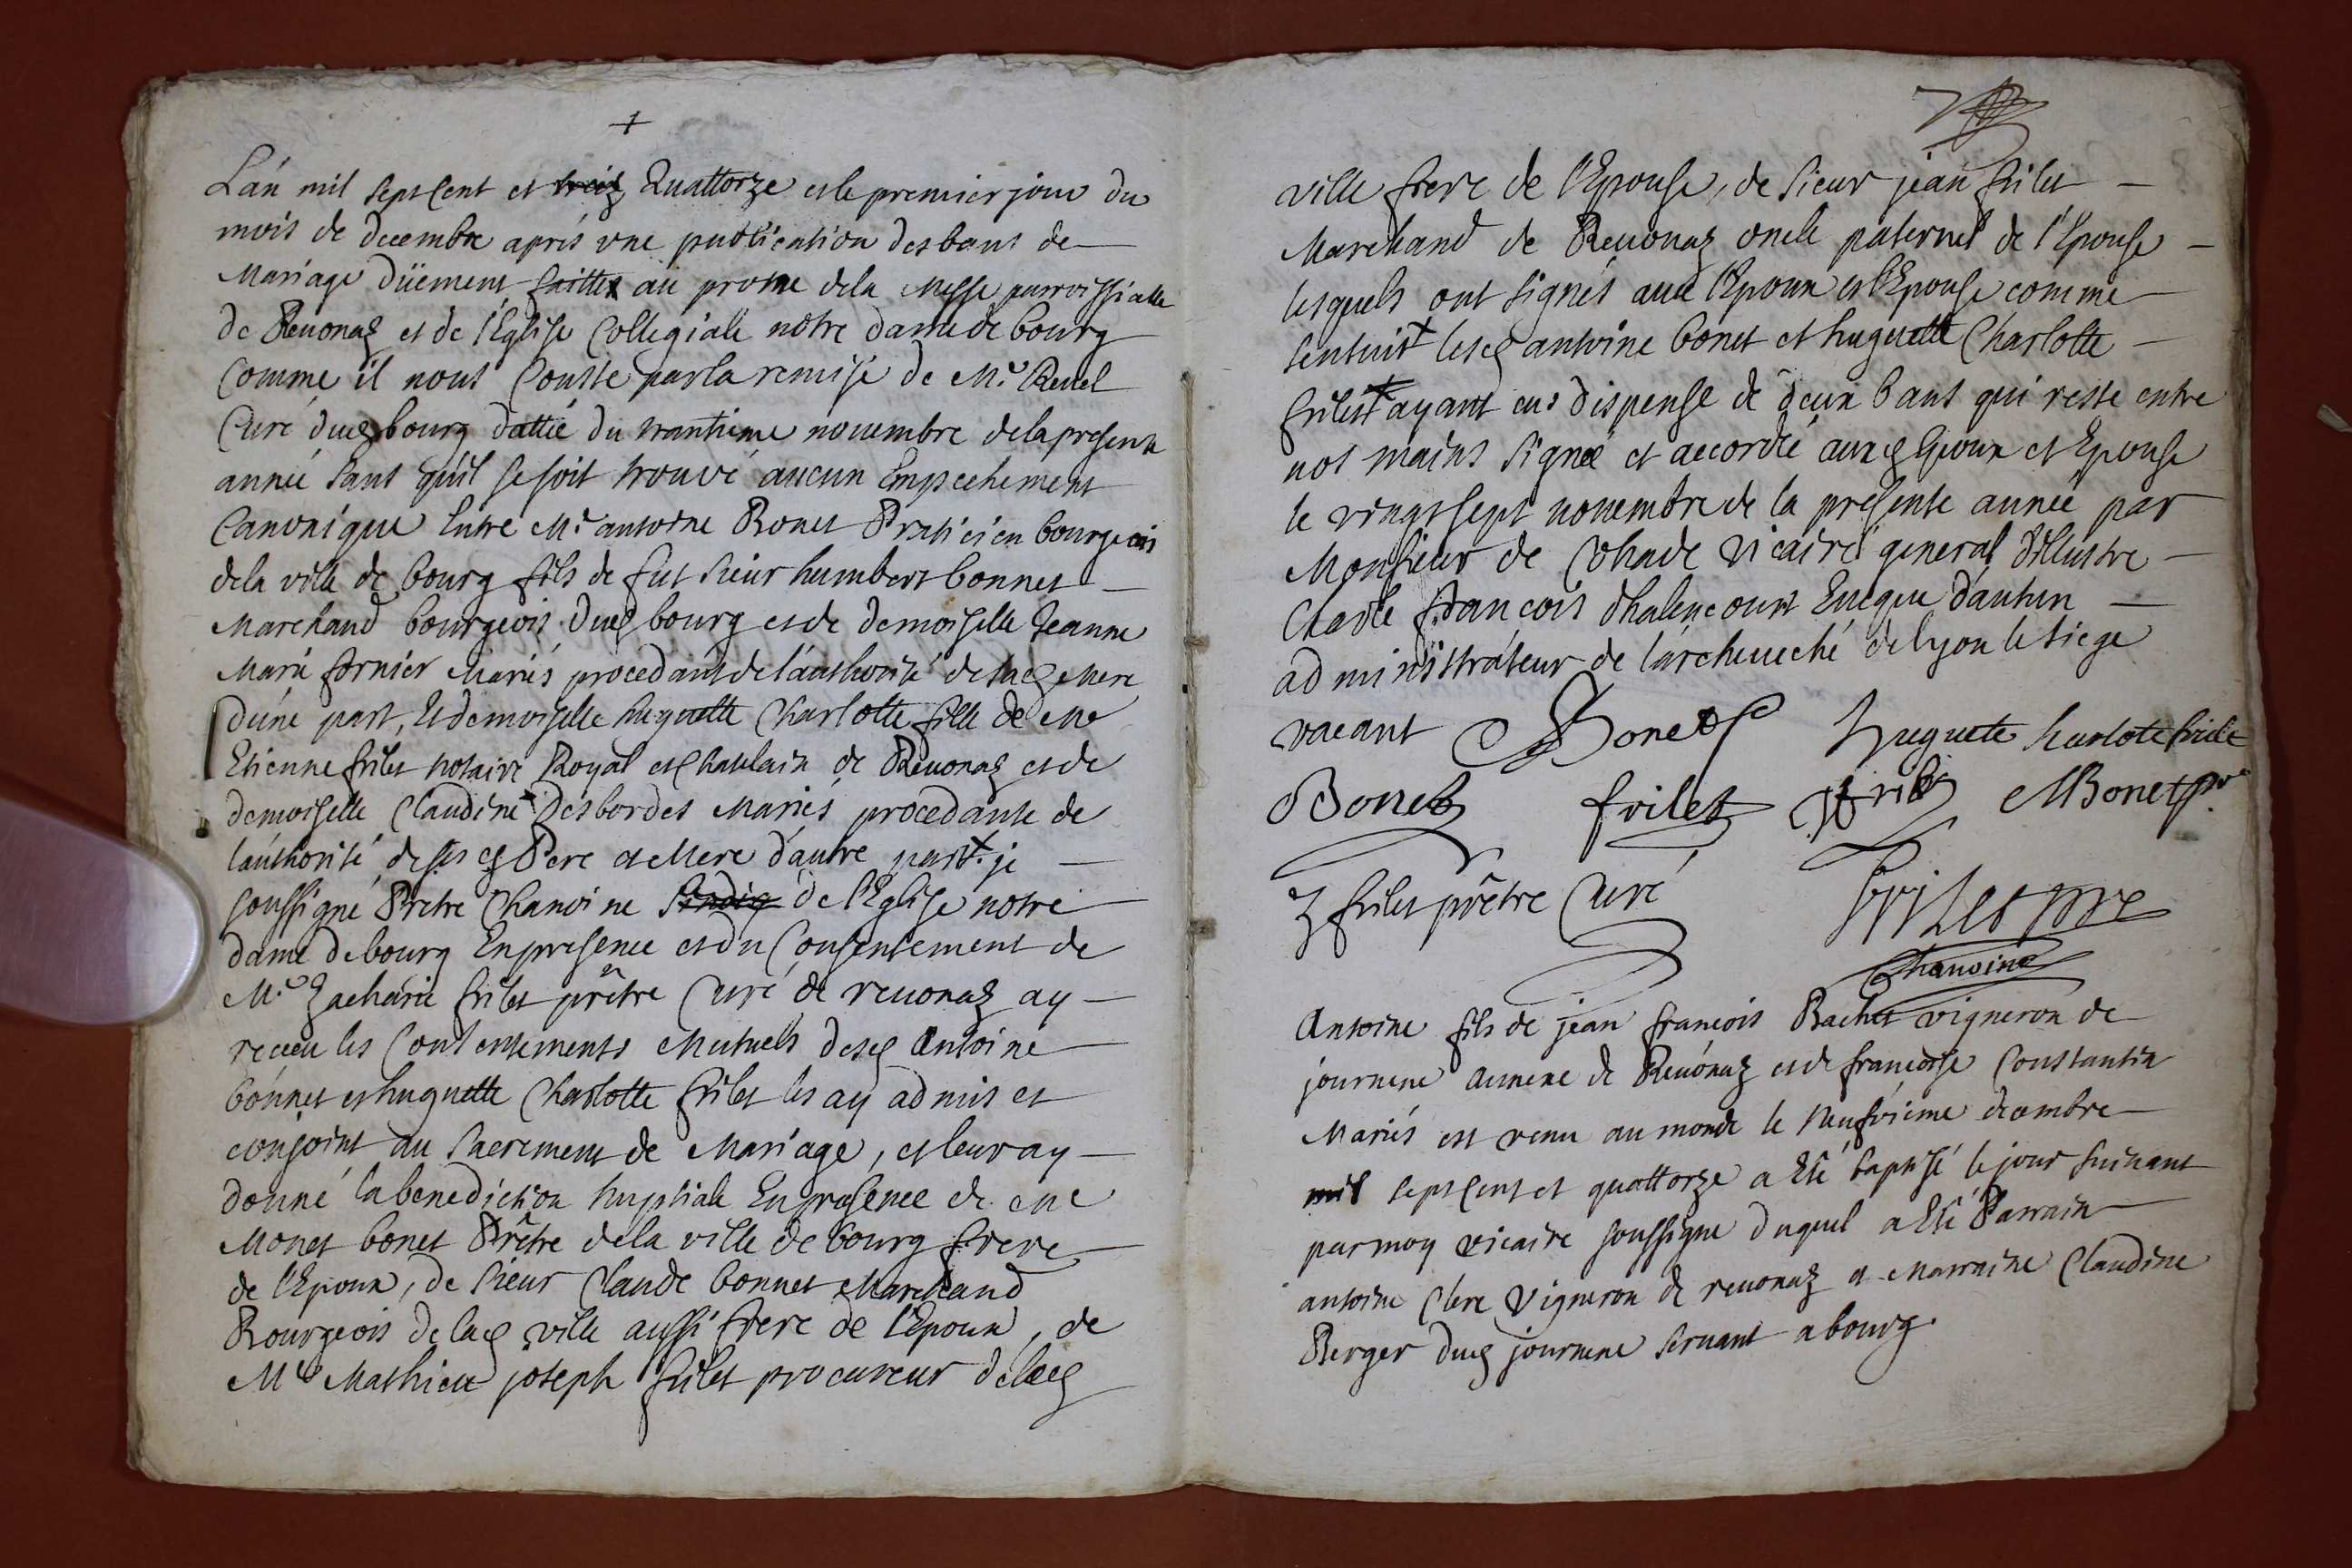 +
L'an mil sept Cent et treiz Quattorze et le premier jour du
mois de decembre aprés vne publication des bans de
Mariage düement faittes au prosne dela Messe parroissialle
de Reuonaz et de l'Eglise Collegiale nôtre dame de bourg
Comme il nous Conste par la remise de Mr. Reuel
Curé dud bourg dattée du trantieme nouembre dela presente
année sans qu'il se soit trouvé aucun Empechement
Canonique Entre Mr. antoine Bonet Praticien bourgeois
dela ville de bourg fils de fut sieur humbert bonnet
Marchand bourgeois dud bourg et de demoiselle Jeanne
Marie fornier Mariés procedant de l'authorité de sad Mere
d'une part, Et demoiselle huguette Charlotte fille de Me
Etienne frilet notaire Royal et Chatelain de Reuonaz et de
demoiselle Claudine Desbordes Mariés procedante de
l'authorité de ses d Pere et Mere d'autre part. je
soussigné Prêtre Chanoine sindiq de l'Eglise notre
dame de bourg En presence et du Consentement de
Mre Zacharie frilet prêtre Curé de reuonaz ay
receu les Consentements Mutuels desd Antoine
bonnet et huguette Charlotte frilet les ay admis et
conjoint au Sacrement de Mariage, et leur ay
donné la benediction Nuptiale En presence de Me
Monet bonet Prêtre dela ville de bourg frere
de l'Epoux, de sieur Claude bonnet Marchand
Bourgeois de lad ville aussi frere de l'Epoux, de
Me Mathieu joseph frilet procureur de lad
7
ville frere de l'Epouse, de sieur jean frilet
Marchand de Reuonaz oncle paternel de l'Epouse
lesquels ont signés auec l'Epoux et l'Epouse comme
sensuit lesd antoine bonet et huguette Charlotte
frilet ayant eus dispense de deux bans qui reste entre
nos mains signée et accordée auxd Epoux et Epouse
le vingt sept nouembre de la presente année par
Monsieur de Cohade Vicaire general d'illustre
Charle francois dhalencourt Eueque d'autun
administrateur de l'archeueché de lyon le siege
vacant Bonet hugueteharlote frilet
Bonet frilet frilet MBonet Pre
Z frilet prêtre Curé frilet pre
Chanoine
Antoine fils de jean francois Bachet vigneron de
journene annexe de Reuonaz et de francoise Constantin
Mariés est venu au monde le Neufvieme decembre
mil sept Cent et quattorze a Eté baptisé le jour suivant
par moy vicaire soussigne duquel a Eté Parrain
antoine Clere Vigneron de reuonaz et Marraine Claudine
Berger dud journene seruant a bourg.